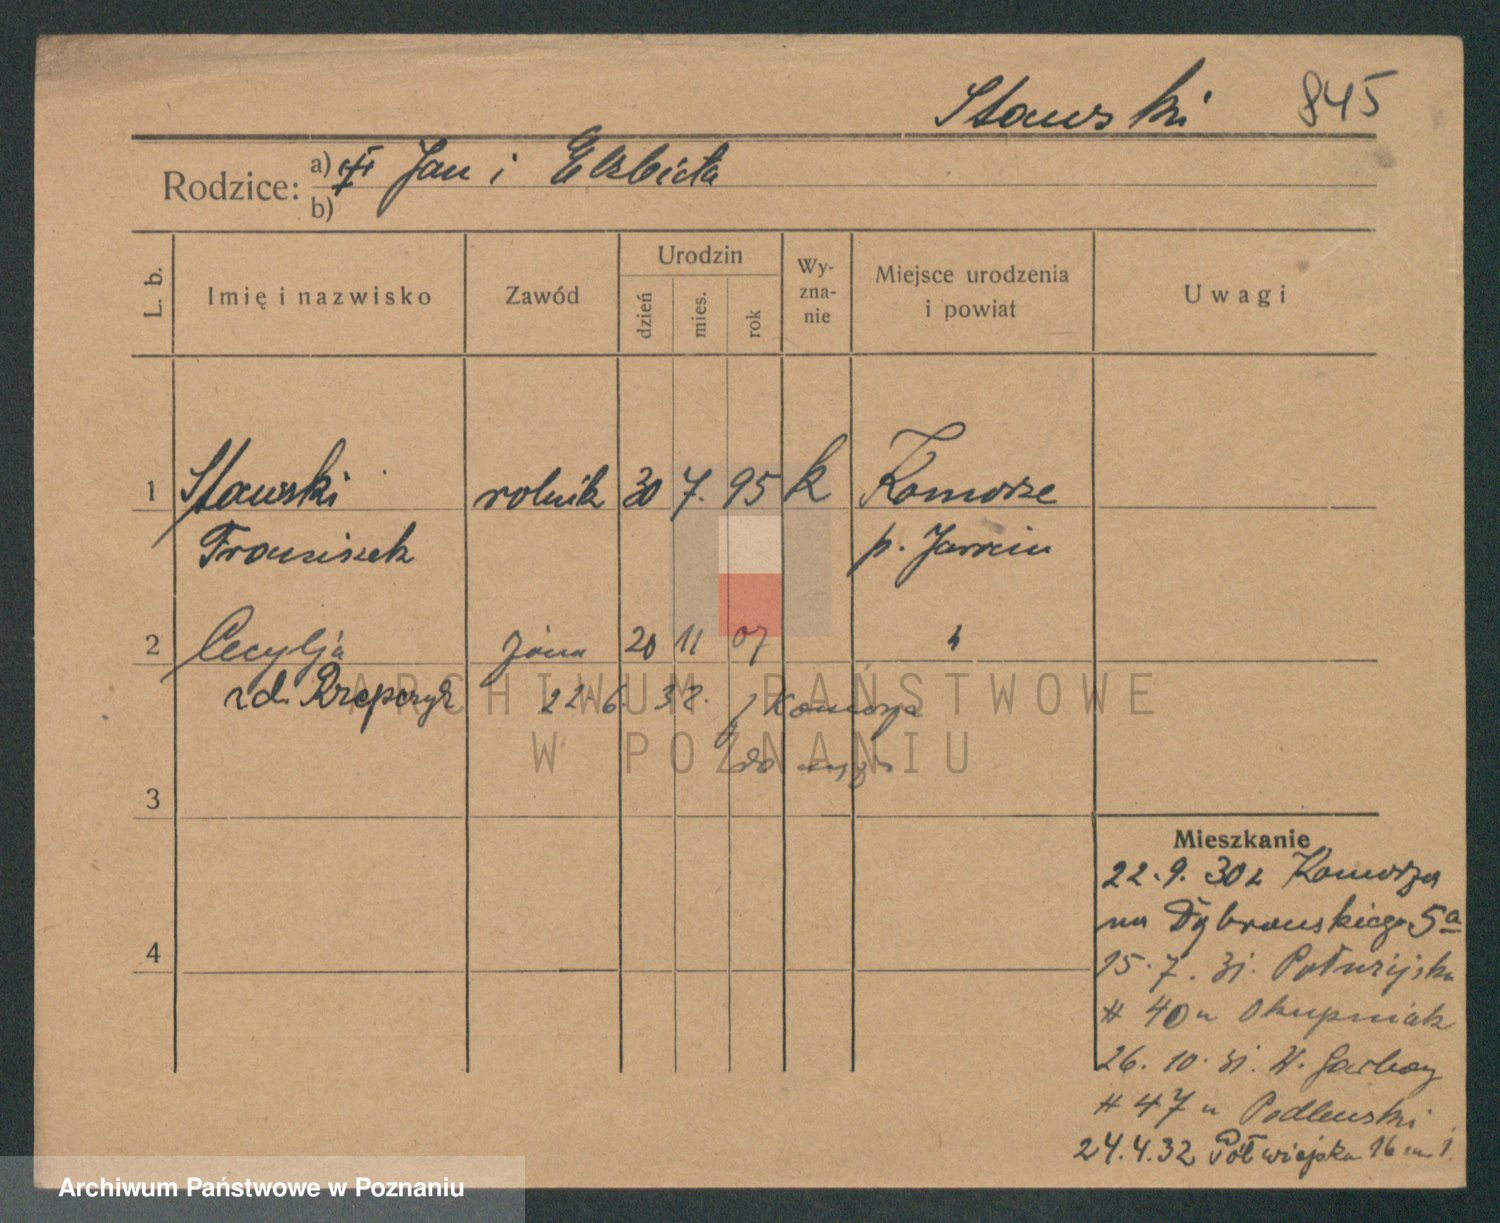 Stawski 845
Rodzice: a) Jan i Elżbieta
b)
L. b. Imię i nazwisko Zawód Urodzin dzień mies. rok Wy-zna-nie Miejsce urodzenia i powiat Uwagi
1 Stawski rolnik 30 7. 95 k Komorze
Franciszek p. Jarocin
2 Cecylja żona 20 11 07 "
zd. Rzepczyk 22.6. 38. Komorza
do
3
Mieszkanie
22.9.30 z Komorza
na Dąbrowskiego 5a
4
15.7.31. Półwiejska
# 40 u Okupniak
26.10.31. W. Garbary
# 47 u Podlewski
24.4.32 Półwiejska 16 m 1.
ARCHIWUM PAŃSTWOWE
W POZNANIU
Archiwum Państwowe w Poznaniu